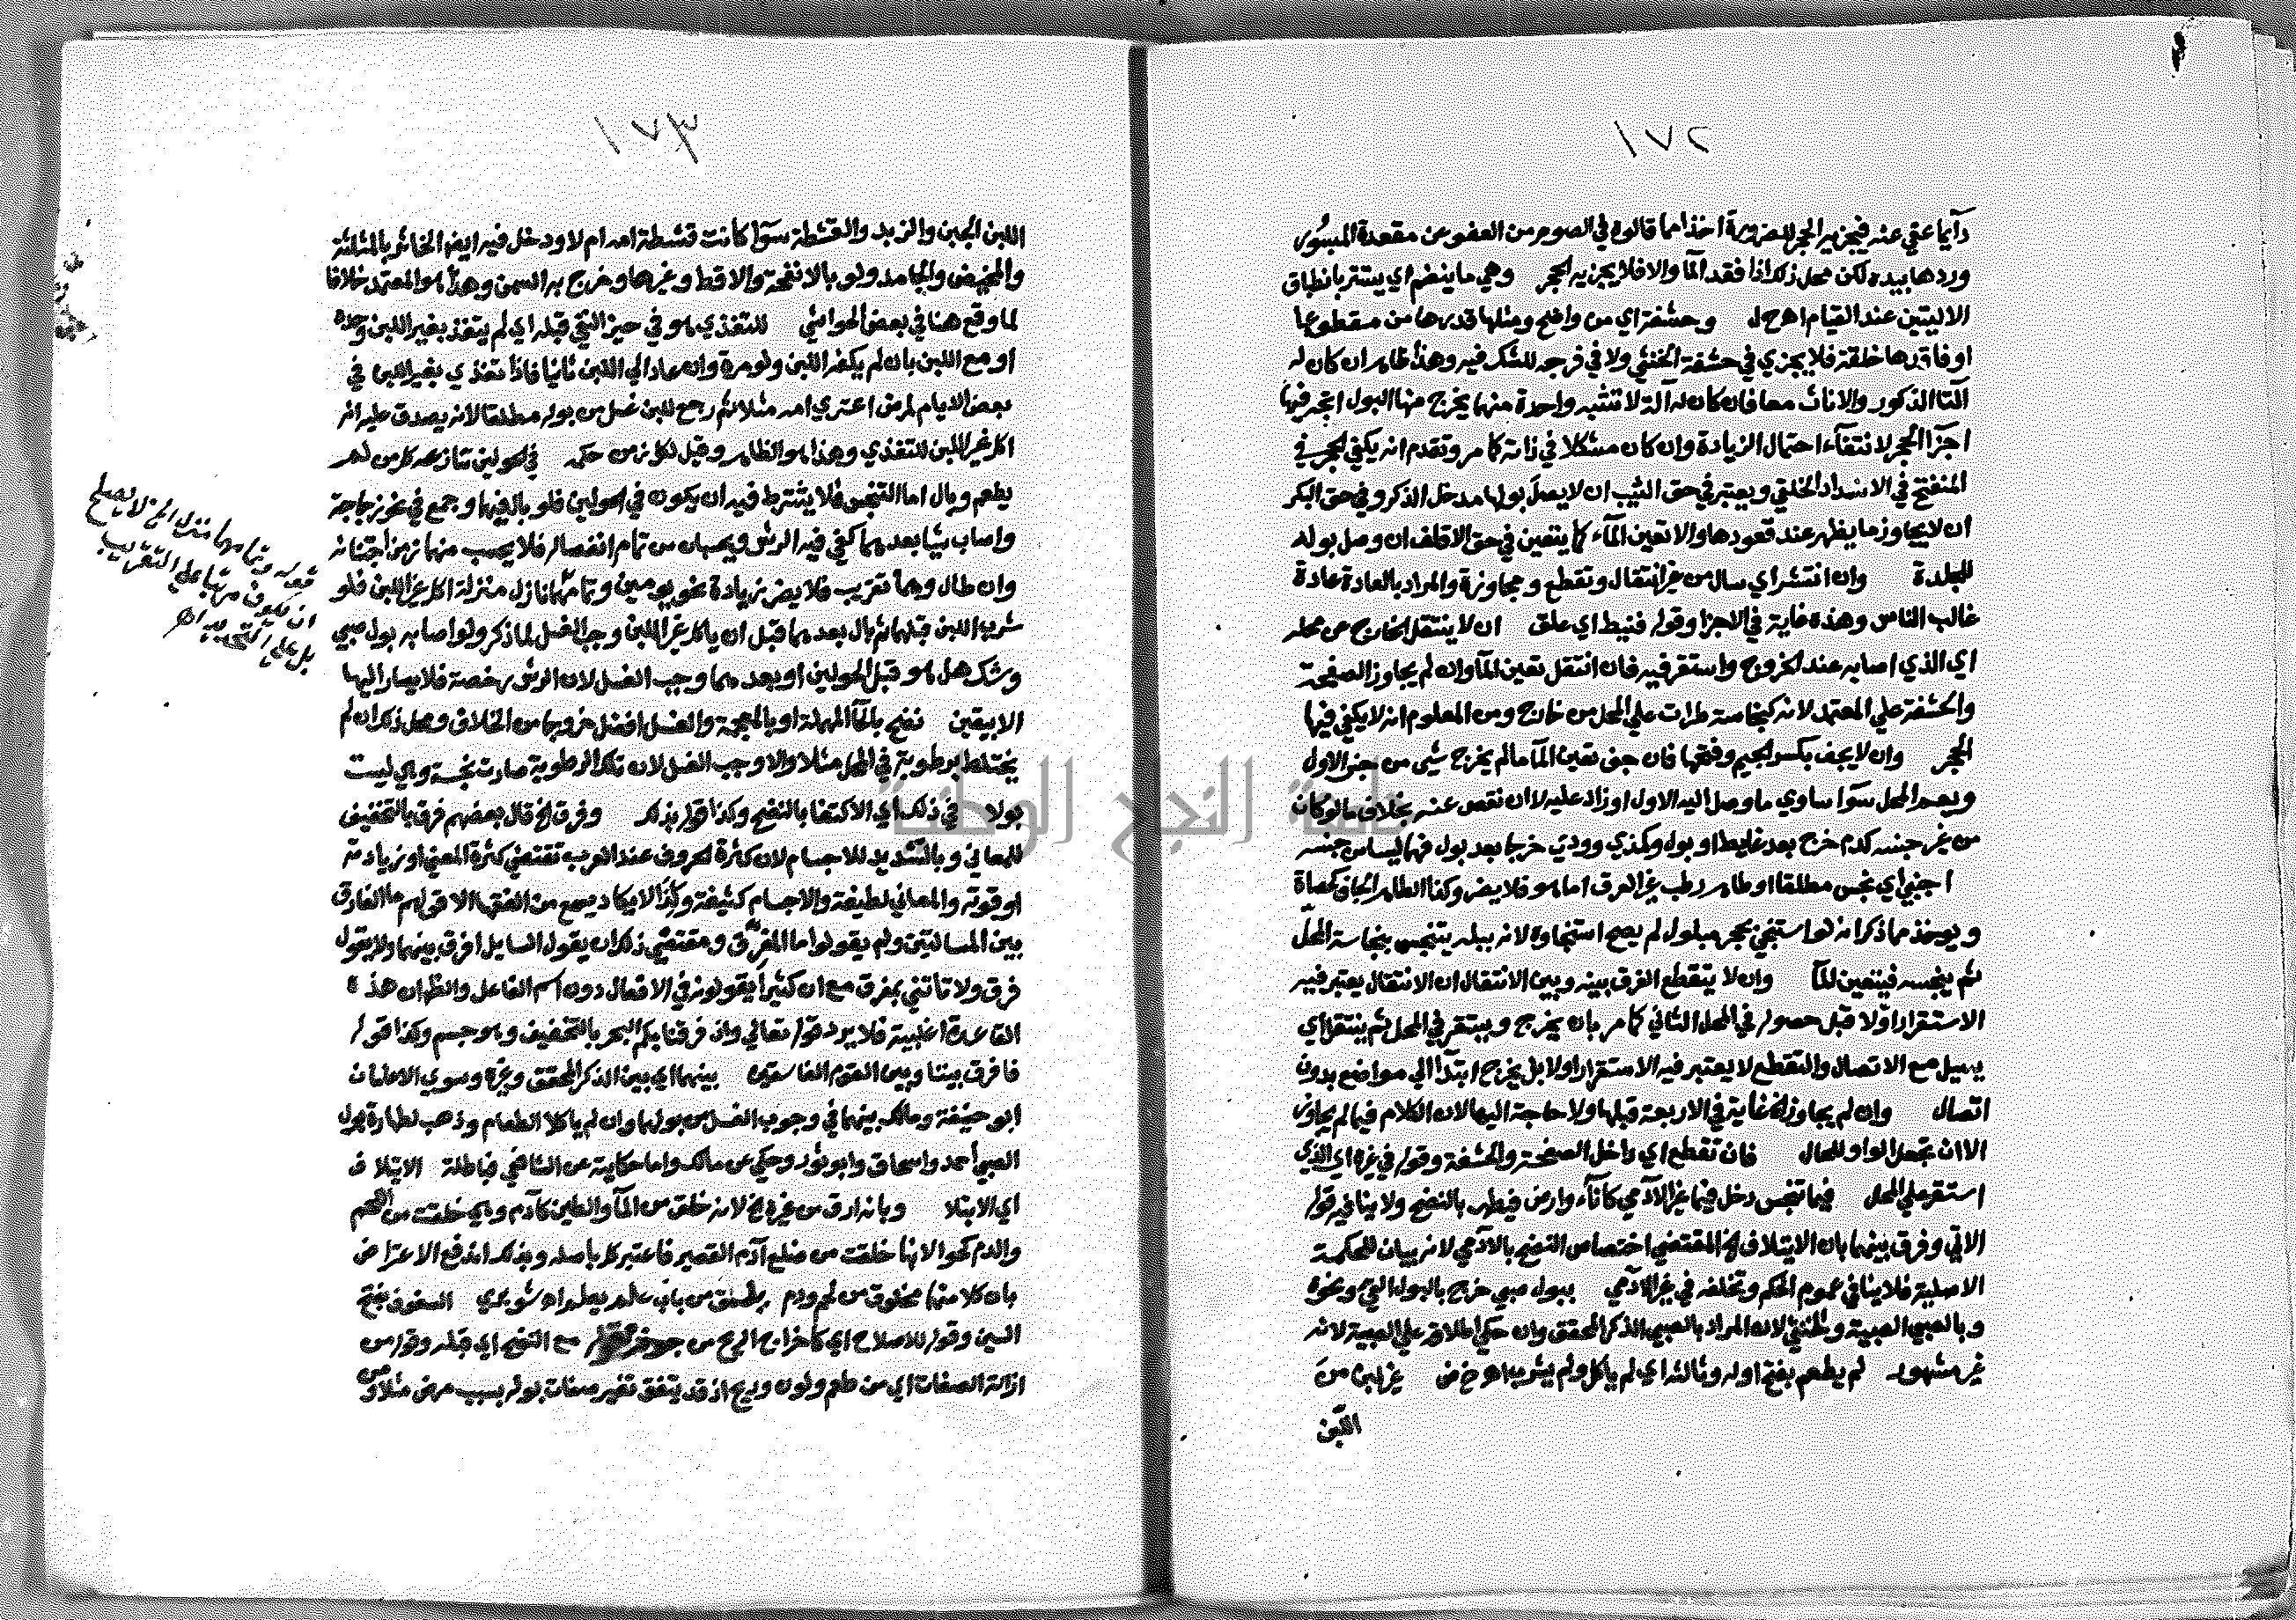 ١٧٢
دآيما عفي عنه فيجزيه الحجر للضرورة اخذا مما قالوه في الصوم من العفو عن مقعدة المبسور
وردها بيده لكن محل ذلك اذا فقد المآ والا فلا يجزيه الحجر وهي ما ينضم اي يستتر بانطباق
الاليتين عند القيام اهرح ل وحشفة اي من واضح ومثلها قدرها من مقطوعها
او فاقدها خلقة فلا يجزي في حشفة الخنثي ولا في فرجه للشك فيه وهذا ظاهر ان كان له
آلتا الذكور والاناث معا فان كان له آلة لا تشبه واحدة منهما يخرج منها البول اتجه فيها
اجزآ الحجر لانتفآء احتمال الزيادة وان كان مشكلا في ذاته كما مر وتقدم انه يكفي الحجر في
المنفتح في الانسداد الخلقي ويعتبر في حق الثيب ان لا يصل بولها مدخل الذكر وفي حق البكر
ان لا يجاوز ما يظهر عند قعودها والا تعين المآء كما يتعين في حق الاقلف ان وصل بوله
للجلدة وان انتشر اي سال من غير انتقال وتقطع ومجاوزة والمراد بالعادة عادة
غالب الناس وهذه غاية في الاجزا وقوله فنبط اي علق ان لا ينتقل الخارج عن محله
اي الذي اصابه عند الخروج واستقر فيه فان انتقل تعين المآ وان لم يجاوز الصفحة
والحشفة علي المعتمد لانه كنجاسة طرات علي المحل من خارج ومن المعلوم انه لا يكفي فيها
الحجر وان لا يجف بكسر الجيم وفتحها فان جف تعين المآ ما لم يخرج شيء من جنس الاول
ويصل المحل سوآ ساوي ما وصل اليه الاول او زاد عليه لا ان نقص عنه بخلاف ما لو كان
من غير جنسه كدم خرج بعد غايط او بول وكمذي وودي خرجا بعد بول فهما ليسا من جنسه
اجنبي اي نجس مطلقا او طاهر رطب غير العرق اما هو فلا يضر وكذا الطاهر الجاف كحصاة
ويوخذ مما ذكر انه لو استنجي بحجر مبلول لم يصح استنجاوه لانه ببلله يتنجس بنجاسة المحل
ثم ينجسه فيتعين المآ وان لا يتقطع الفرق بينه وبين الانتقال ان الانتقال يعتبر فيه
الاستقرار اولا قبل حصوله في المحل الثاني كما مر بان يخرج ويستقر في المحل ثم ينتقل اي
يسيل مع الاتصال والتقطع لا يعتبر فيه الاستقرار اولا بل يخرج ابتدآ الي مواضع بدون
اتصال وان لم يجاوز الخ غاية في الاربعة قبلها ولا حاجة اليها لان الكلام فيما لم يجاوز
الا ان تجعل الواو للحال فان تقطع اي داخل الصفحة والحشفة وقوله في غيره اي الذي
استقر علي المحل فيما تنجس دخل فيها غير الآدمي كانآء وارض فيطهر بالنضح ولا ينافيه قوله
الاتي وفرق بينهما بان الايتلاف الخ المقتضي اختصاص النضح بالآدمي لانه بيان للحكمة
الاصلية فلا ينافي عموم الحكم وتخلفه في غير الآدمي ببول صبي خرج بالبول القي ونحوه
وبالصبي الصبية والخنثي لان المراد بالصبي الذكر المحقق وان حكي اطلاقه علي الصبية لانه
غير مشهور لم يطعم بفتح اوله وثالثه اي لم ياكل ولم يشرب اهرخ ض غير لبن من
اللبن
١٧٣
اللبن الجبن والزبد والقشطة سوآ كانت قشطة امه ام لا ودخل فيه ايضا الخاثر بالمثلثة
والمخيض والجامد ولو بالانفحة والاقط وغيرها وخرج به السمن وهذا هو المعتمد خلافا
لما وقع هنا في بعض الحواشي للتغذي هو في حيز النفي قبله اي لم يتغذ بغير اللبن وحده
او مع اللبن بان لم يكفه اللبن ولو مرة وان عاد الي اللبن ثانيا فاذا تغذي بغير اللبن في
بعض الايام لمرض اعتري امه مثلا ثم رجع للبن غسل من بوله مطلقا لانه يصدق عليه انه
اكل غير اللبن للتغذي وهذا هو الظاهر وقيل لكل زمن حكمه في الحولين تنازعه كل من لم
يطعم وبال اما التنجس فلا يشترط فيه ان يكون في الحولين فلو بال فيهما وجمع في نحو زجاجة
واصاب شيا بعدهما كفي فيه الرش ويحسبان من تمام انفصاله فلا يحسب منهما زمن اجتنانه
وان طال وهما تقريب فلا يضر زيادة نحو يومين وتمامهما نازل منزلة اكل غير اللبن فلو
شرب اللبن قبلهما ثم بال بعدهما قبل ان ياكل غير اللبن وجب الغسل لما ذكر ولو اصابه بول صبي
وشك هل هو قبل الحولين او بعدهما وجب الغسل لان الرش رخصة فلا يصار اليها
الا بيقين نضح بالحآ المهملة او بالمعجمة والغسل افضل خروجا من الخلاف ومحل ذلك ان لم
يختلط برطوبة في المحل مثلا والا وجب الغسل لان تلك الرطوبة صارت نجسة وهي ليست
بولا في ذلك اي الاكتفا بالنضح وكذا قوله بذلك وفرق الخ قال بعضهم فرق بالتخفيف
للمعاني وبالتشديد للاجسام لان كثرة الحروف عند العرب تقتضي كثرة المعني او زيادته
او قوته والمعاني لطيفة والاجسام كثيفة ولهذا لا يكاد يسمع من الفقها الا قولهم ما الفارق
بين المسالتين ولم يقولوا ما المفرق ومقتضي ذلك ان يقول السايل افرق بينهما ولا يقول
فرق ولا تاتني بمفرق مع ان كثيرا يقولونه في الافعال دون اسم الفاعل والظ ان هذه
القاعدة اغلبية فلا يرد قوله تعالي واذ فرقنا بكم البحر بالتخفيف وهو جسم وكذا قوله
فافرق بيننا وبين القوم الفاسقين بينهما اي بين الذكر المحقق وغيره وسوي الامامان
ابو حنيفة ومالك بينهما في وجوب الغسل من بولهما وان لم ياكلا الطعام وذهب لطهارة بول
الصبي احمد واسحاق وابو ثور وحكي عن مالك واما حكايته عن الشافعي فباطلة الايتلاف
اي الابتلا وبانه ارق من غيره الخ لانه خلق من المآ والطين كآدم وهي خلقت من اللحم
والدم كحوا لانها خلقت من ضلع آدم القصير فاعتبر كل باصله وبذلك اندفع الاعتراض
بان كلا منهما مخلوق من لحم ودم يلصق من باب علم يعلم اهشوبري السفون بفتح
السين وقوله للاصلاح اي كاخراج الريح من جوفه مع النضح اي قبله وقوله من
ازالة الصفات اي من طعم ولون وريح اذ قد يتفق تغير صفات بوله بسبب مرض مثلا ومن
قوله وتمامهما منزل الخ لا يصلح
ان يكون مرتبا علي التقريب
بل علي التحديد اهر